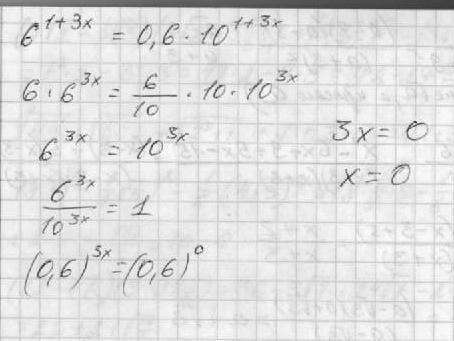 6^{1+3x} = 0,6 · 10^{1+3x}
6 · 6^{3x} = \frac{6}{10} · 10 · 10^{3x}
6^{3x} = 10^{3x}
\frac{6^{3x}}{10^{3x}} = 1
(0,6)^{3x} = (0,6)^0
3x = 0
x = 0